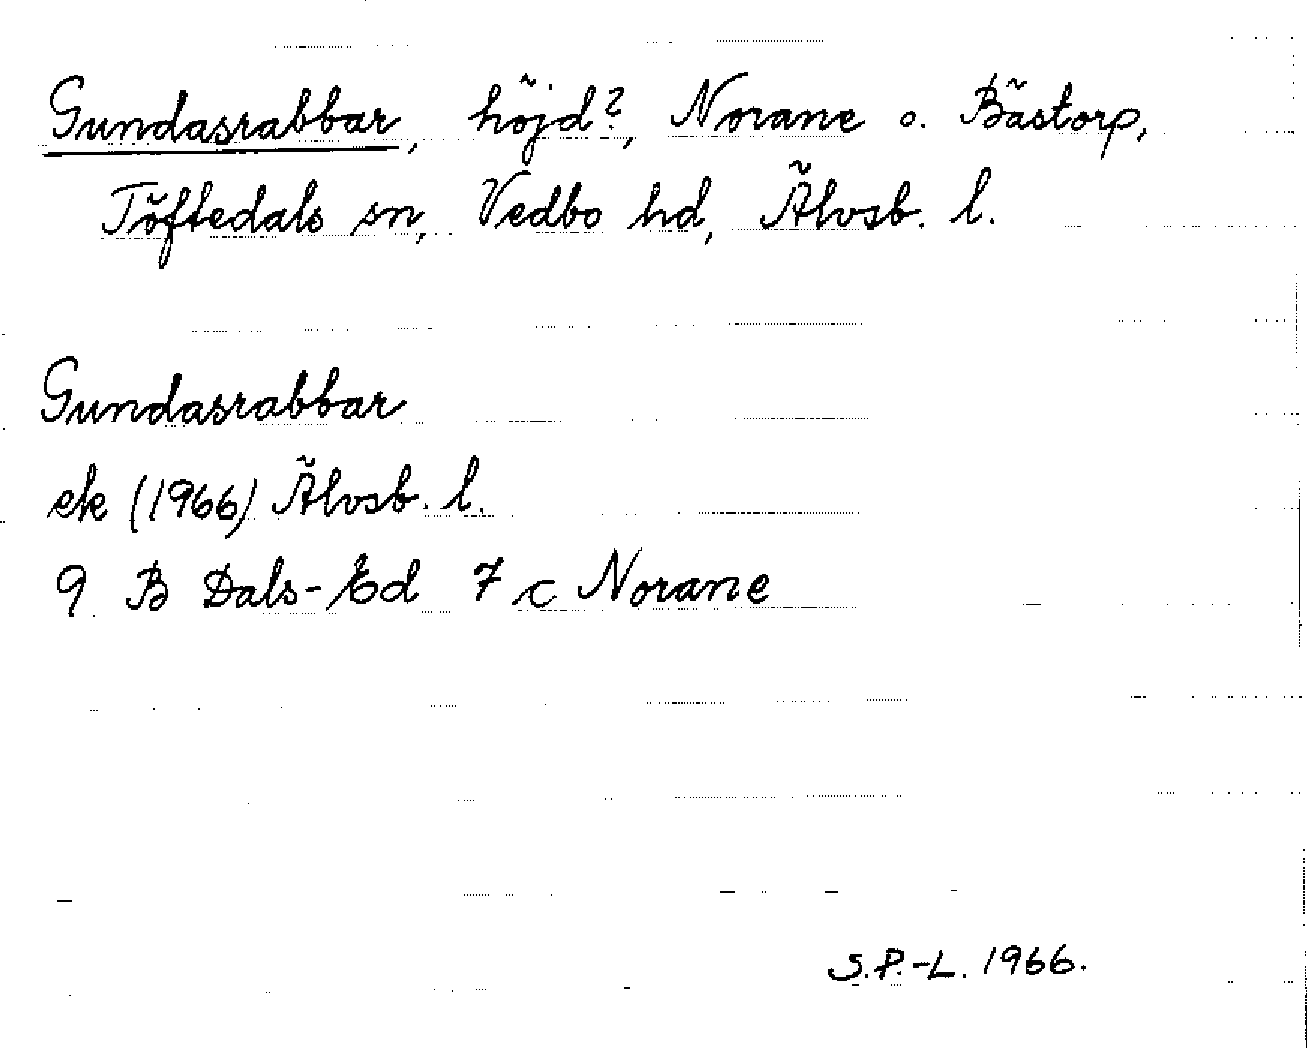 Gundasrabbar, höjd?, Norane o. Bästorp,
Töftedals sn, Vedbo hd, Älvsb. l.
Gundasrabbar
ek (1966) Älvsb. l.
9 B Dals-Ed 7 c Norane
S.P.-L. 1966.